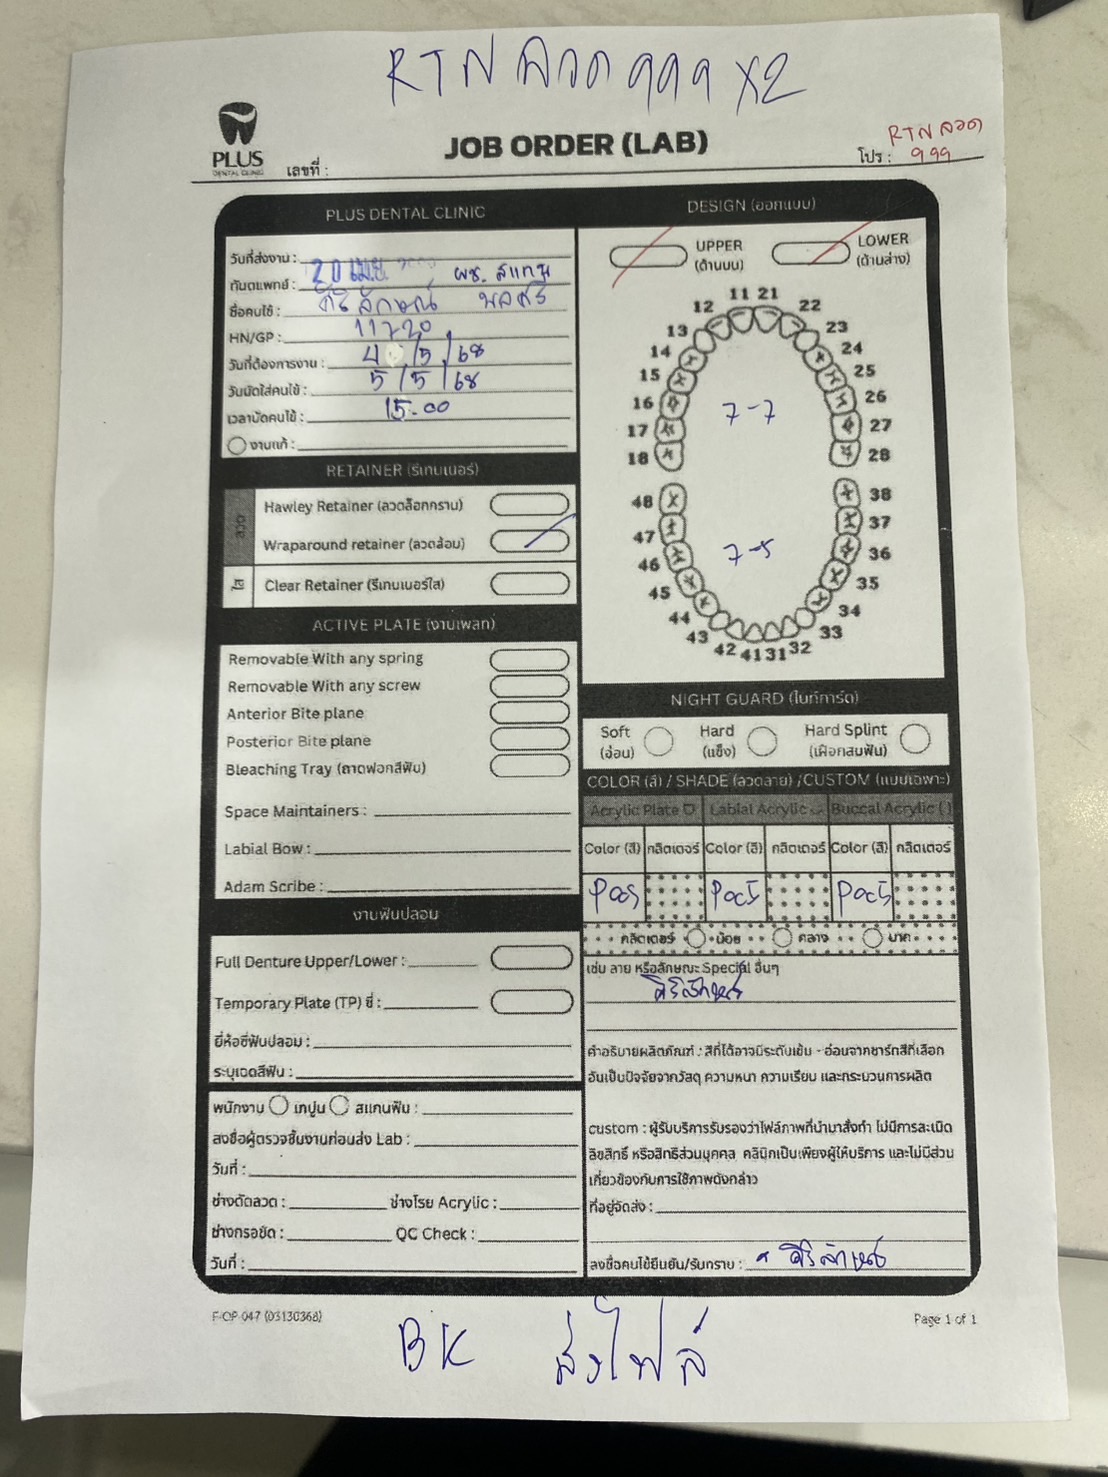 RTN ลวด 999 X2
PLUS
DENTAL CLINIC
เลขที่ :
JOB ORDER (LAB)
RTN ลวด
โปร : 999
PLUS DENTAL CLINIC
วันที่ส่งงาน : 20 เม.ย.
ทันตแพทย์ : ผช. สแกน
ชื่อคนไข้ : ศิริลักษณ์ พลศรี
HN/GP : 11220
วันที่ต้องการงาน : 4 /5 /68
วันนัดใส่คนไข้ : 5 /5 /68
เวลานัดคนไข้ : 15.00
งานแก้ :
RETAINER (รีเทนเนอร์)
ลวด
Hawley Retainer (ลวดล็อกกราม)
Wraparound retainer (ลวดล้อม)
ใส
Clear Retainer (รีเทนเนอร์ใส)
ACTIVE PLATE (งานเพลท)
Removable With any spring
Removable With any screw
Anterior Bite plane
Posterior Bite plane
Bleaching Tray (ถาดฟอกสีฟัน)
Space Maintainers :
Labial Bow :
Adam Scribe :
งานฟันปลอม
Full Denture Upper/Lower :
Temporary Plate (TP) ซี่ :
ยี่ห้อซี่ฟันปลอม :
ระบุเฉดสีฟัน :
พนักงาน เทปูน สแกนฟัน :
ลงชื่อผู้ตรวจชิ้นงานก่อนส่ง Lab :
วันที่ :
ช่างดัดลวด : ช่างโรย Acrylic :
ช่างกรอขัด : QC Check :
วันที่ :
DESIGN (ออกแบบ)
UPPER
(ด้านบน)
LOWER
(ด้านล่าง)
11 21
12 22
13 23
14 24
15 25
16 26
17 27
18 28
7-7
48 38
47 37
46 36
45 35
44 34
43 33
42 41 31 32
7-5
NIGHT GUARD (ไนท์การ์ด)
Soft
(อ่อน)
Hard
(แข็ง)
Hard Splint
(เฝือกสบฟัน)
COLOR (สี) / SHADE (ลวดลาย) /CUSTOM (แบบเฉพาะ)
Acrylic Plate Labial Acrylic Buccal Acrylic ( )
Color (สี) กลิตเตอร์ Color (สี) กลิตเตอร์ Color (สี) กลิตเตอร์
กลิตเตอร์ น้อย กลาง มาก
เช่น ลาย หรือลักษณะ Special อื่นๆ
ศิริลักษณ์
คำอธิบายผลิตภัณฑ์ : สีที่ได้อาจมีระดับเข้ม - อ่อนจากชาร์ทสีที่เลือก
อันเป็นปัจจัยจากวัสดุ ความหนา ความเรียบ และกระบวนการผลิต
custom : ผู้รับบริการรับรองว่าไฟล์ภาพที่นำมาสั่งทำ ไม่มีการละเมิด
ลิขสิทธิ์ หรือสิทธิส่วนบุคคล คลินิกเป็นเพียงผู้ให้บริการ และไม่มีส่วน
เกี่ยวข้องกับการใช้ภาพดังกล่าว
ที่อยู่จัดส่ง :
ลงชื่อคนไข้ยืนยัน/รับทราบ : ศิริลักษณ์
F-OP-047 (03130368)
Page 1 of 1
BK ส่งไฟล์